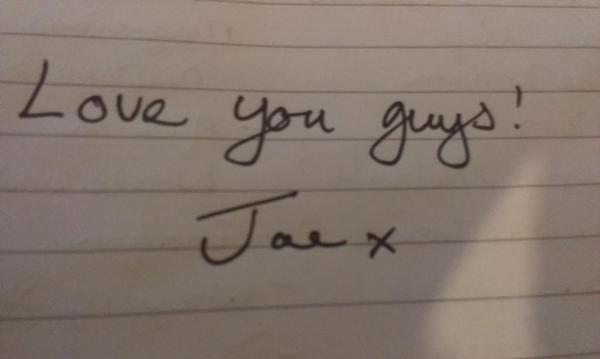 Love you guys!
Jae x